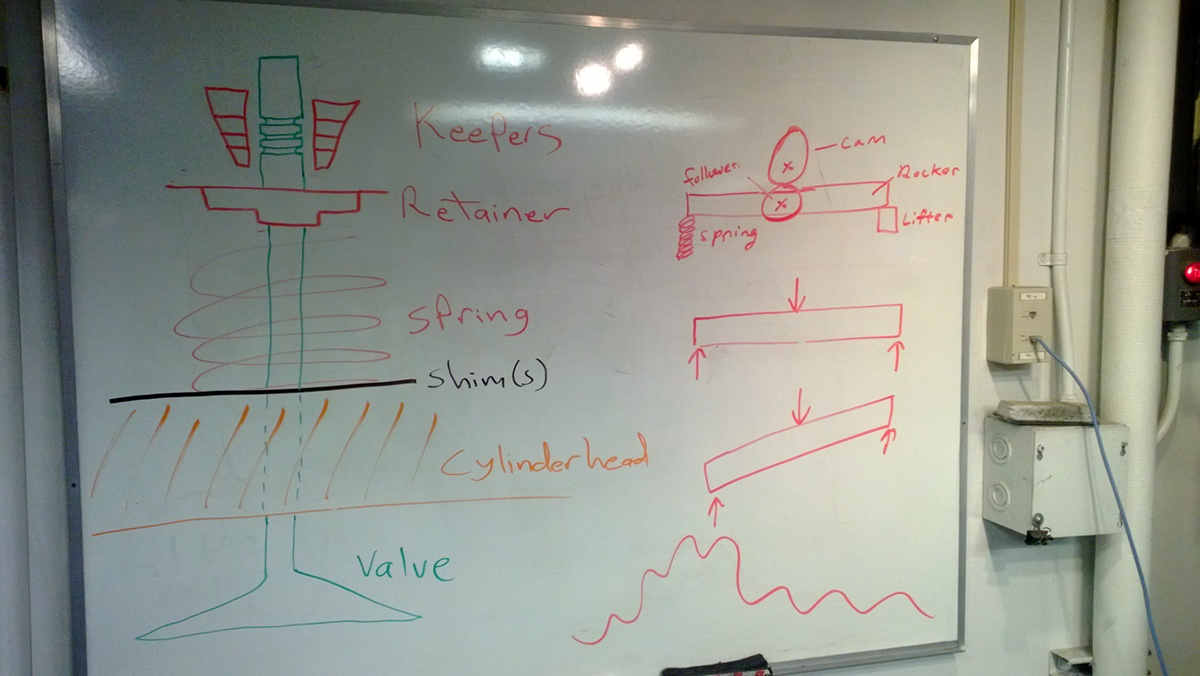 Keepers
Retainer
spring
shim(s)
Cylinderhead
Valve
cam
follower
Rocker
Lifter
spring